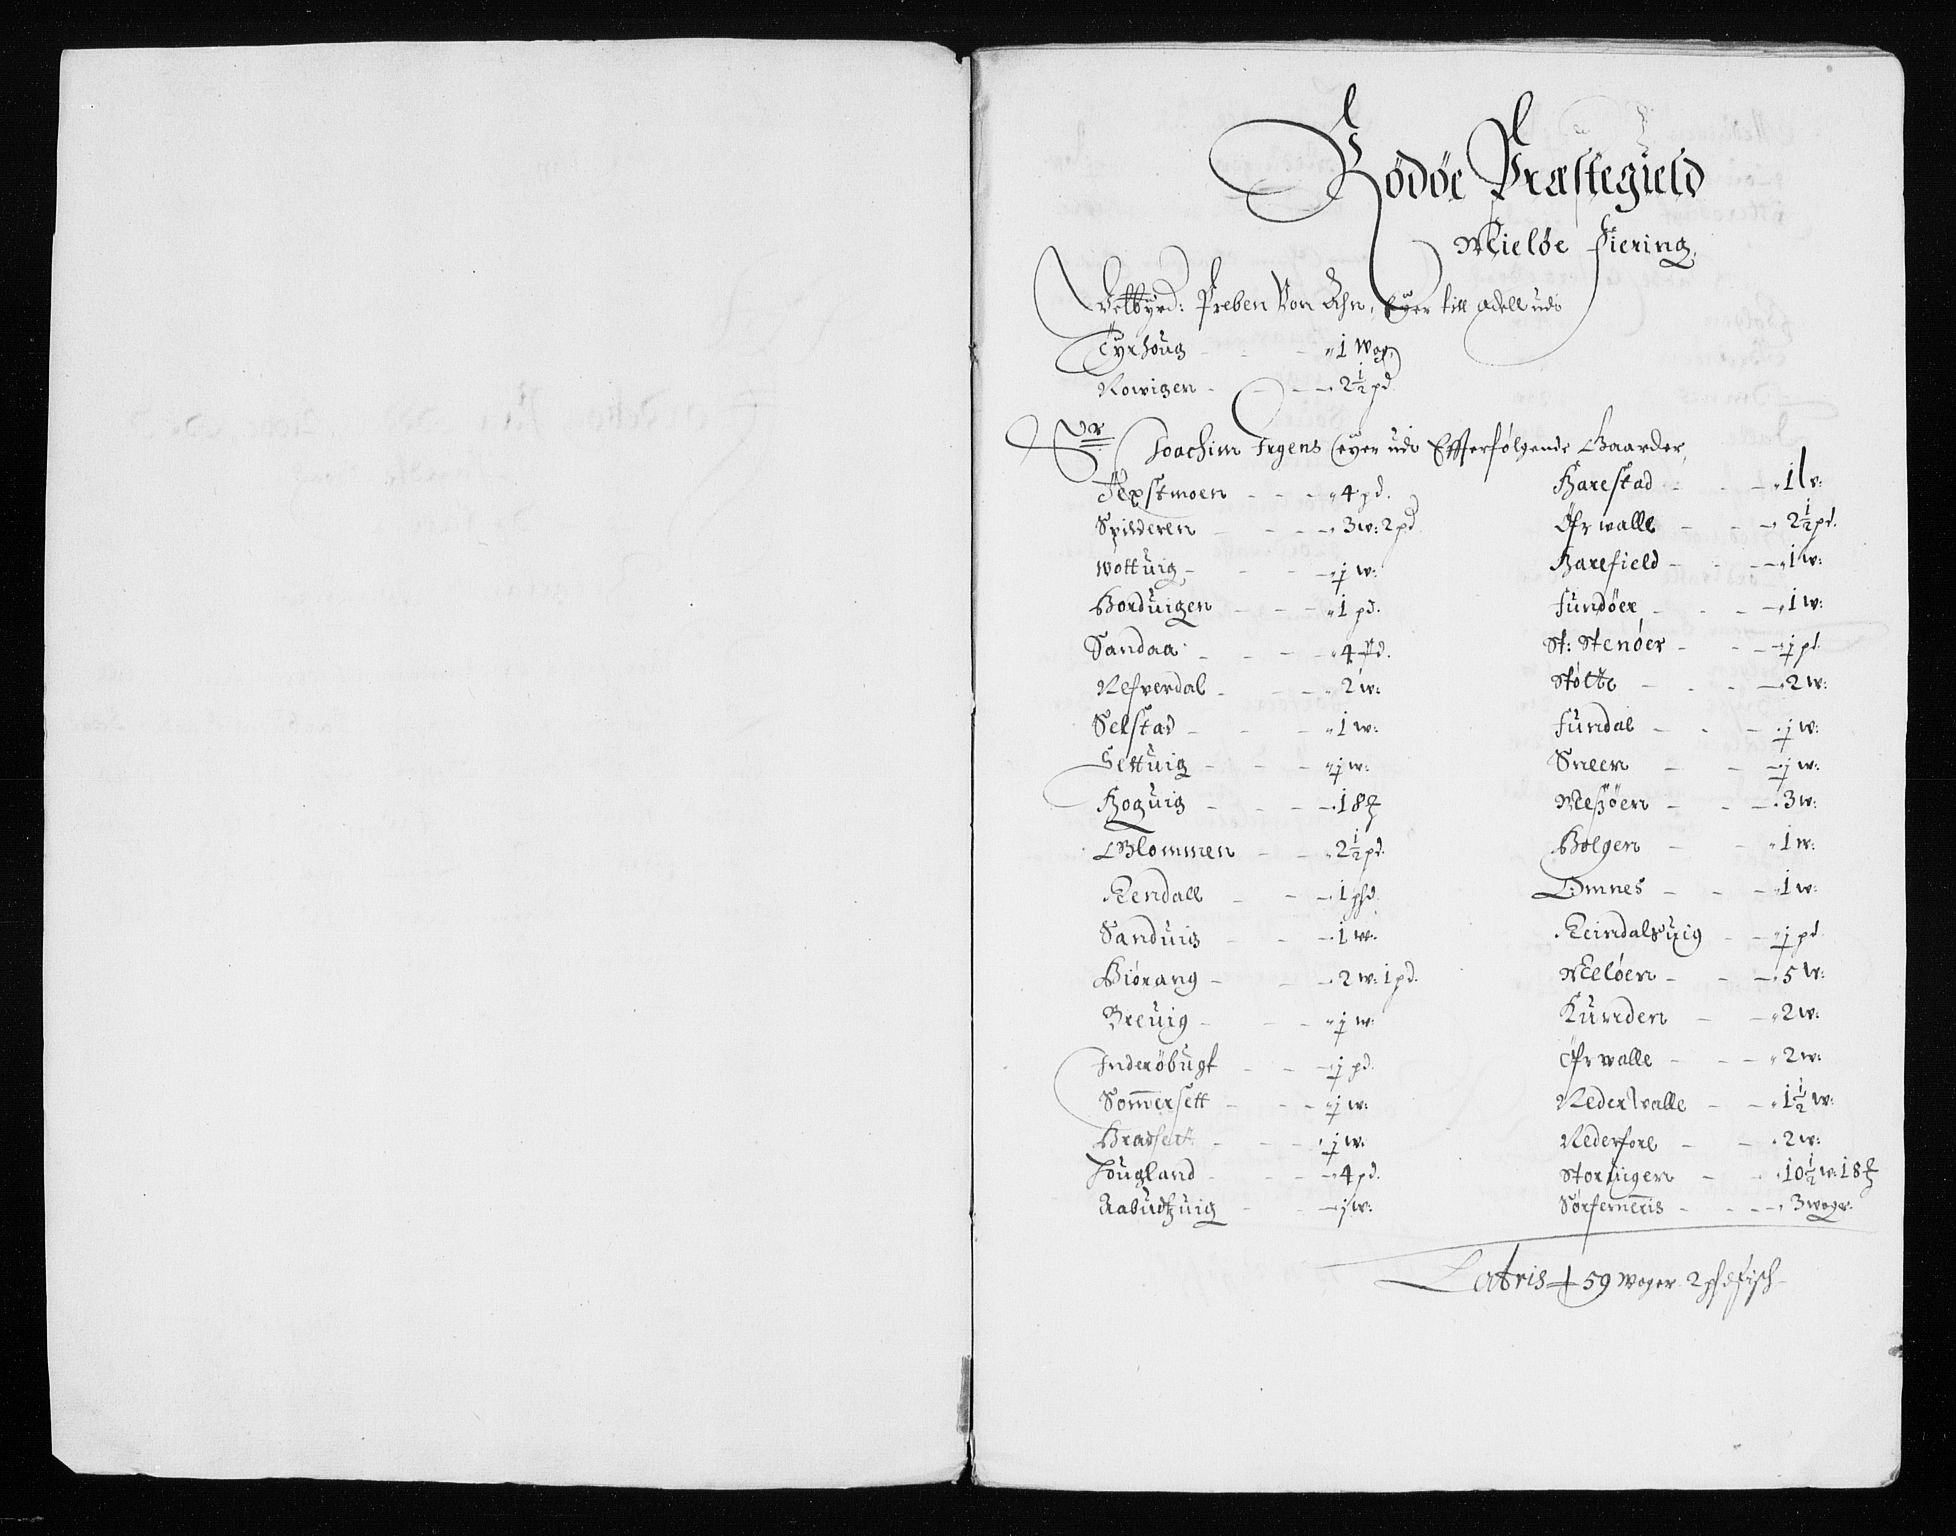 Rödöe Præstegield
Mielöe fiering,
Velbÿrd: Preben Von Ahn, Eÿer till odell udi
Tyrhoug - - „1 Wog,
Novigen - - - 2½ pd.
Sr
Joachim Irgens eyer udi Effterfølgende Gaarder,
Jepstmoen - - - „4 pd.
Spilderen - - 3 w: 2 pd
Wottuig - - - ½ w:
Horduigen - - - „1 pd.
Sandaa - - - „4 pd.
Nefverdal - - - „2 w:
Selstad - - - „1 w:
Settuig - - - „½ w:
Hoguig - - - 18 ℔
Blommen - - „2½ pd.
Rendall - - - 1 pd.
Sanduig - - - 1 w:
Biörang - - - 2 w: 1 pd.
Breuig - - - „½ w:
Inderöbugt - - ½ pd.
Som̄ersett - - - „½ w:
Bratsett - - - ½ w:
Hougland - - - 4 pd.
Aabudtzuig - - - ½ w:
Harestad - - - „1 w:
Ofr walle - - - 2½ pd.
Harefield - - - „1 w:
fundöer - - - „1 w:
St: Stenöer - - - ½ pd
Stött - - - 2 w:
fundal - - - ½ w:
Sneen - - - ½ w:
Mesöen - - - 3 w:
Bolgen - - „1 w:
Omnes - - - „1 w:
Reindalsuig - - „½ pd
Melöen - - - „5 w:
Kunnden - - „2 w:
Öfr walle - - - „2 w:
Neder walle - - „1½ w:
Nederfore - - 2 w:
Storuigen - - „10½ w: 18 ℔
Sørfern̄eris - - - 3 woger.
Lateris 59 Woger 2 pd fisch